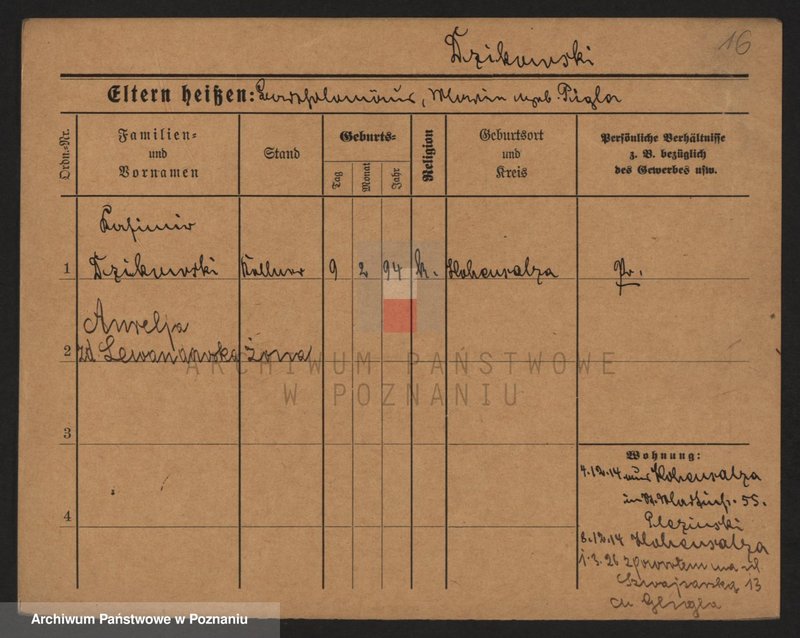 16
Dzikowski
Eltern heißen: Bartholomäus, Marie geb. Pigla
Ordn.=Nr.
Familien= und Vornamen
Stand
Geburts=
Tag
Monat
Jahr
Religion
Geburtsort und Kreis
Persönliche Verhältnisse z. B. bezüglich des Gewerbes usw.
Kasimir
1 Dzikowski Kellner 9 2 94 k. Hohensalza Pr.
Aurelja
2 zd. Lewandowska żona
3
4
Wohnung:
4.12.14 aus Hohensalza
55.
8.12.14 Hohensalza
1.3.26 z powrotem na ul.
Szwajcarska 13
ARCHIWUM PAŃSTWOWE
W POZNANIU
Archiwum Państwowe w Poznaniu